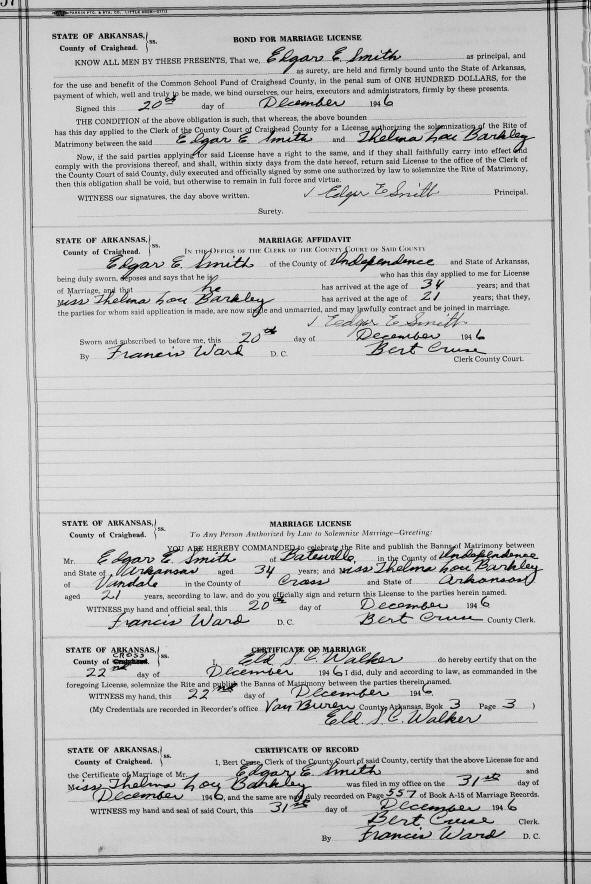 57
PARKIN PTG. & STA. CO., LITTLE ROCK
STATE OF ARKANSAS, } ss.
County of Craighead.
BOND FOR MARRIAGE LICENSE
KNOW ALL MEN BY THESE PRESENTS, That we, Edgar E. Smith as principal, and
as surety, are held and firmly bound unto the State of Arkansas,
for the use and benefit of the Common School Fund of Craighead County, in the penal sum of ONE HUNDRED DOLLARS, for the
payment of which, well and truly to be made, we bind ourselves, our heirs, executors and administrators, firmly by these presents.
Signed this 20th day of December 1946
THE CONDITION of the above obligation is such, that whereas, the above bounden
has this day applied to the Clerk of the County Court of Craighead County for a License authorizing the solemnization of the Rite of
Matrimony between the said Edgar E Smith and Thelma Lou Barkley
Now, if the said parties applying for said License have a right to the same, and if they shall faithfully carry into effect and
comply with the provisions thereof, and shall, within sixty days from the date hereof, return said License to the office of the Clerk of
the County Court of said County, duly executed and officially signed by some one authorized by law to solemnize the Rite of Matrimony,
then this obligation shall be void, but otherwise to remain in full force and virtue.
WITNESS our signatures, the day above written. Edgar E Smith Principal.
Surety.
STATE OF ARKANSAS, } ss.
County of Craighead.
MARRIAGE AFFIDAVIT
IN THE OFFICE OF THE CLERK OF THE COUNTY COURT OF SAID COUNTY
Edgar E. Smith of the County of Independence and State of Arkansas,
being duly sworn, deposes and says that he is who has this day applied to me for License
of Marriage, and that he has arrived at the age of 34 years; and that
Miss Thelma Lou Barkley has arrived at the age of 21 years; that they,
the parties for whom said application is made, are now single and unmarried, and may lawfully contract and be joined in marriage.
Edgar E Smith
Sworn and subscribed to before me, this 20th day of December 1946
By Francis Ward D. C. Bert Cruse
Clerk County Court.
STATE OF ARKANSAS, } ss.
County of Craighead.
MARRIAGE LICENSE
To Any Person Authorized by Law to Solemnize Marriage—Greeting:
YOU ARE HEREBY COMMANDED to celebrate the Rite and publish the Banns of Matrimony between
Mr. Edgar E. Smith of Batesville, in the County of Independence
and State of Arkansas aged 34 years; and Miss Thelma Lou Barkley
of Vindale in the County of Cross and State of Arkansas
aged 21 years, according to law, and do you officially sign and return this License to the parties herein named.
WITNESS my hand and official seal, this 20th day of December 1946
Francis Ward D. C. Bert Cruse County Clerk.
STATE OF ARKANSAS, } ss.
CROSS
County of Craighead.
CERTIFICATE OF MARRIAGE
I, Eld S. C. Walker do hereby certify that on the
22nd day of December 1946 I did, duly and according to law, as commanded in the
foregoing License, solemnize the Rite and publish the Banns of Matrimony between the parties therein named.
WITNESS my hand, this 22nd day of December 1946.
(My Credentials are recorded in Recorder's office Van Buren County, Arkansas, Book 3 Page 3)
Eld S. C. Walker
STATE OF ARKANSAS, } ss.
County of Craighead.
CERTIFICATE OF RECORD
I, Bert Cruse, Clerk of the County Court of said County, certify that the above License for and
the Certificate of Marriage of Mr. Edgar E. Smith and
Miss Thelma Lou Barkley was filed in my office on the 31st day of
December 1946, and the same are now duly recorded on Page 557 of Book A-15 of Marriage Records.
WITNESS my hand and seal of said Court, this 31st day of December 1946
Bert Cruse Clerk.
By Francis Ward D. C.